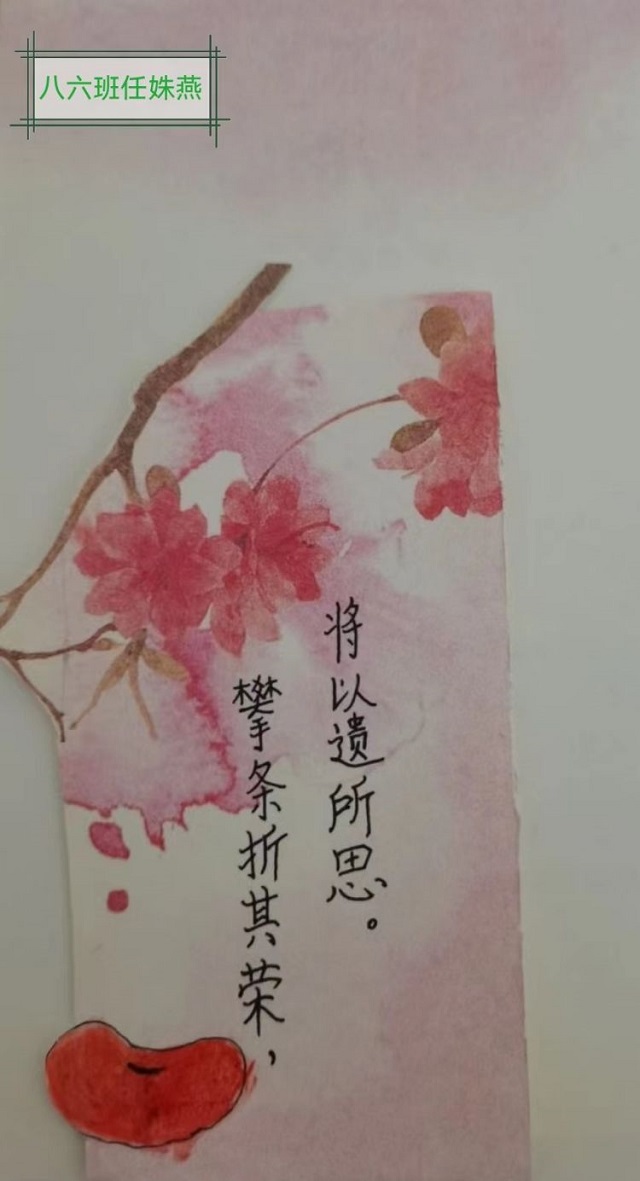 八六班任姝燕
攀条折其荣，
将以遗所思。